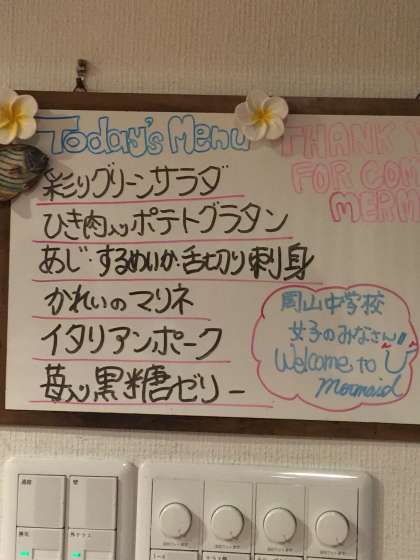 Today's Menu
彩りグリーンサラダ
ひき肉入りポテトグラタン
あじ・するめいか・舌切り刺身
かれいのマリネ
イタリアンポーク
苺入り黒糖ゼリー
THANK Y
FOR COM
MERM
周山中学校
女子のみなさん!!
Welcome to
Mermaid
通路
壁
換気
外テラス